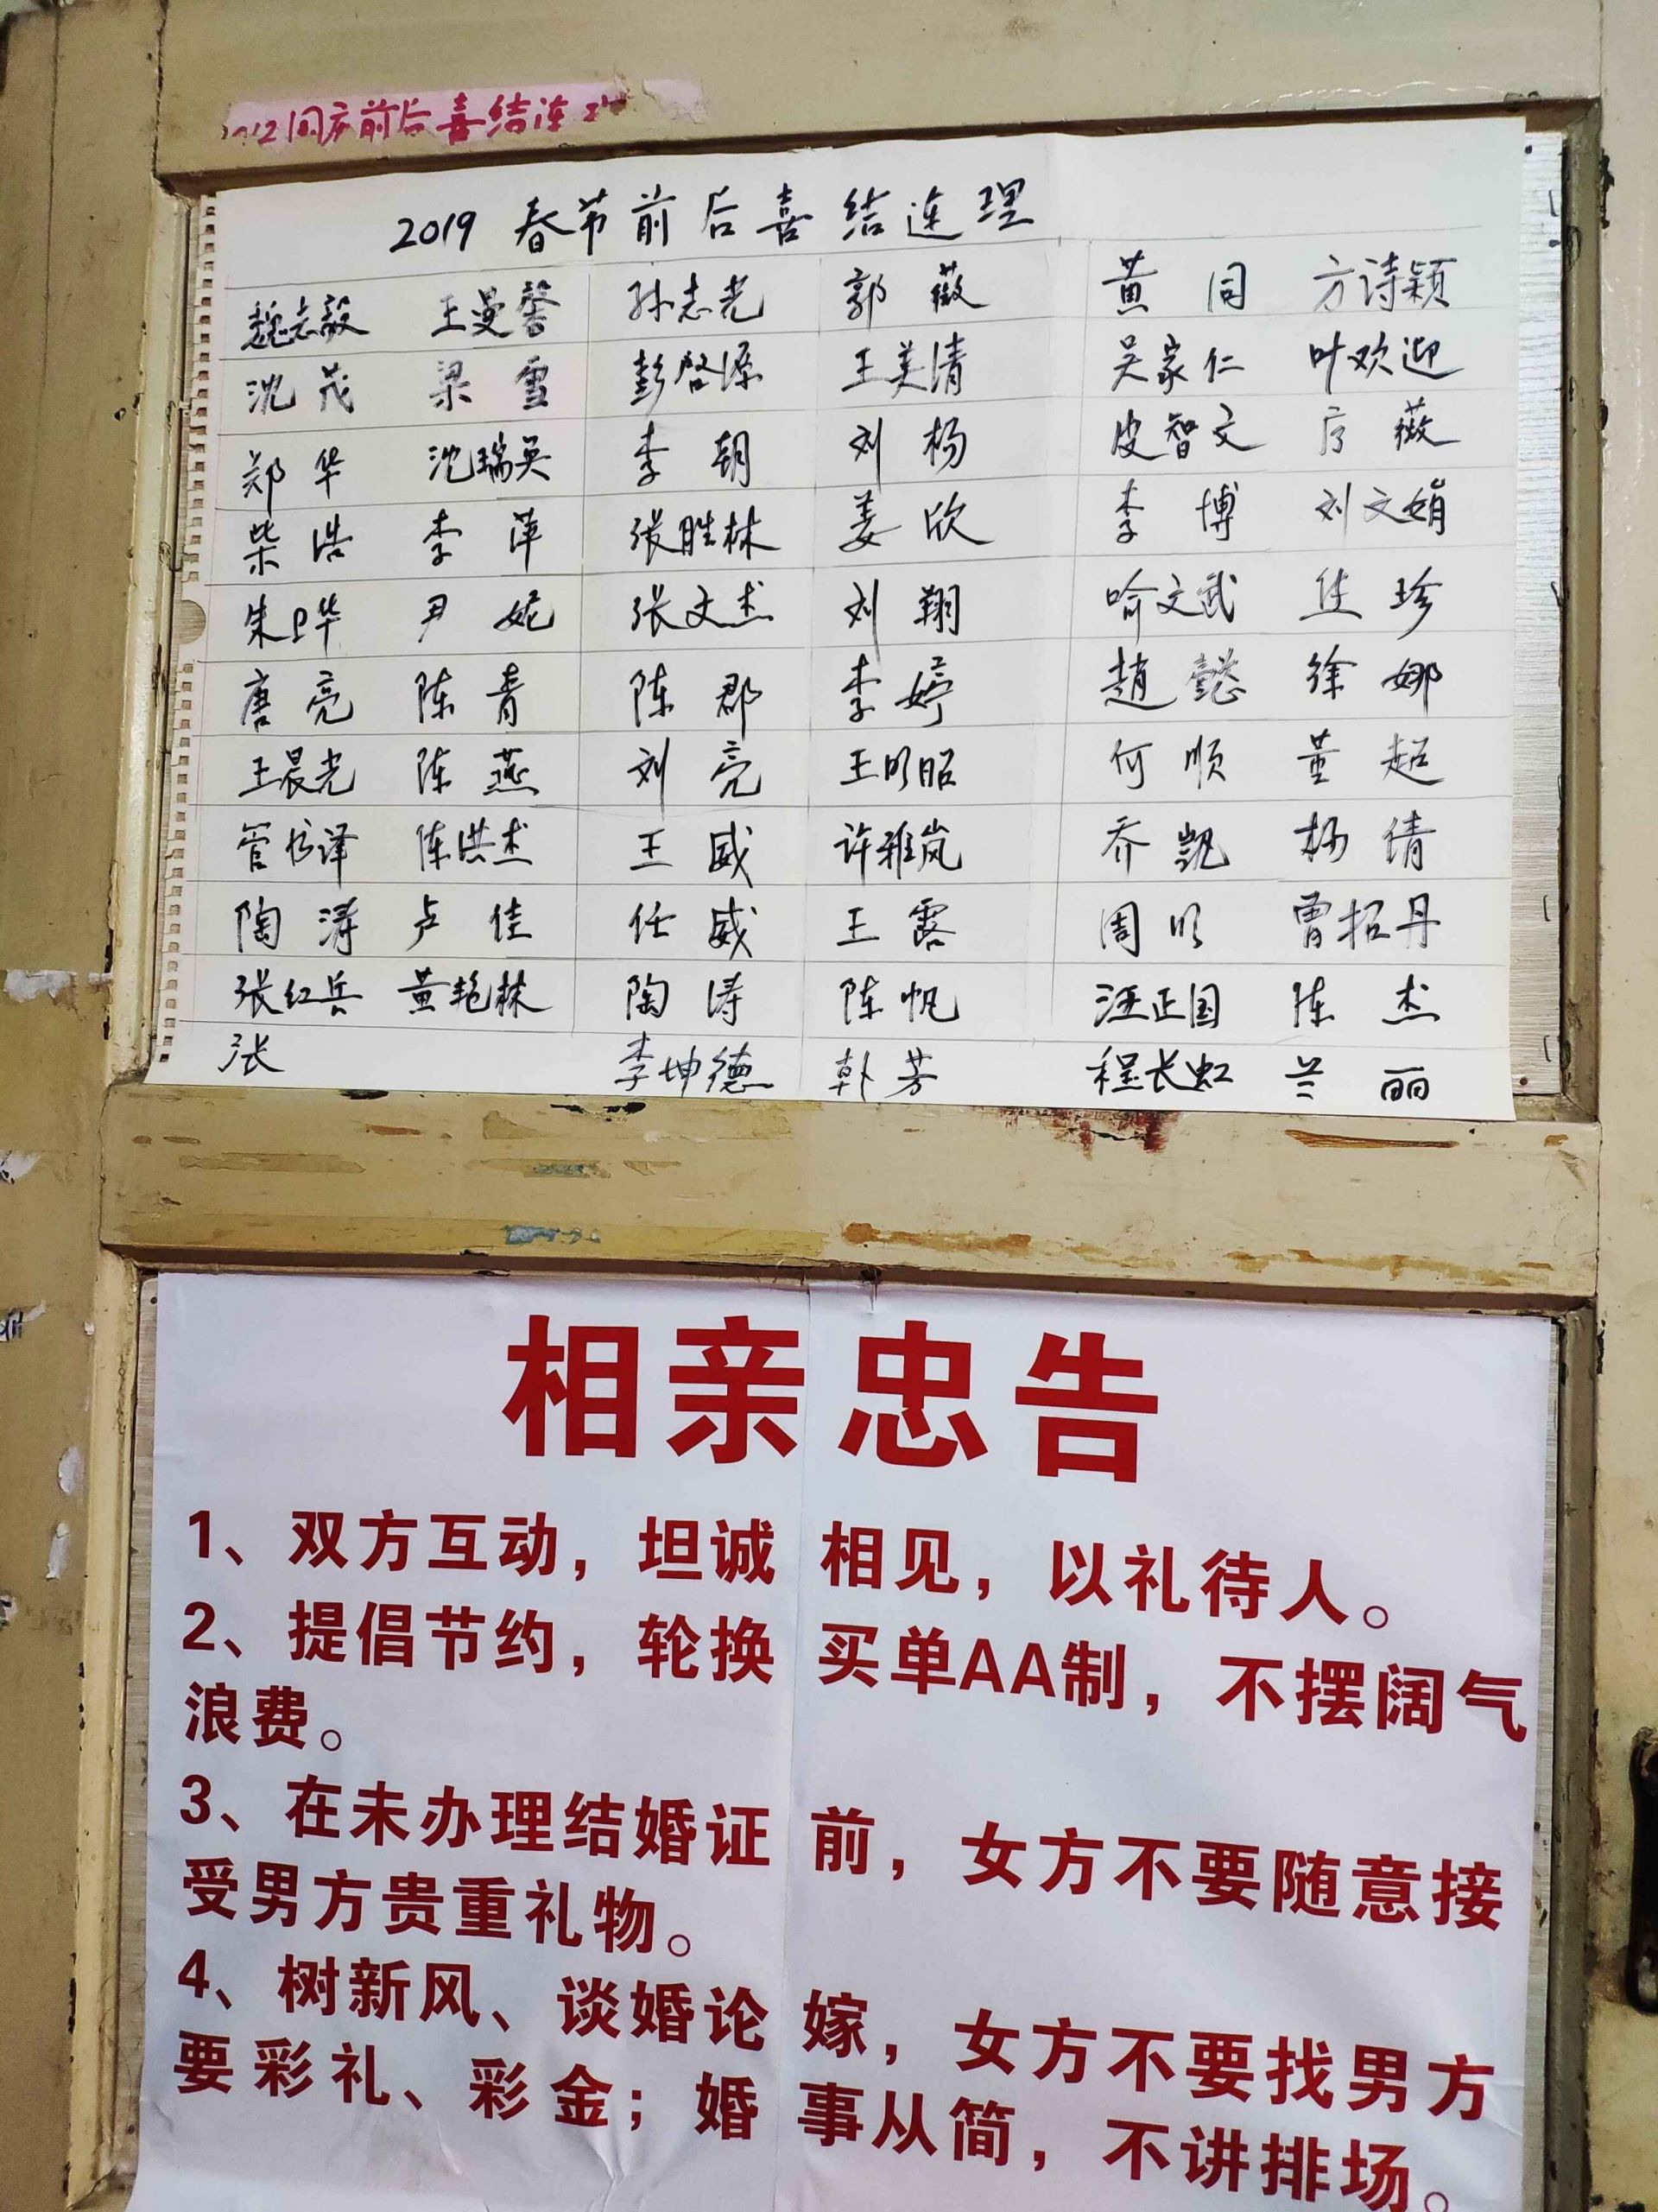 国庆前后喜结连
2019 春节前后喜结连理
魏志毅 王曼馨 孙志光 郭薇 黄同 方诗颖
沈茂 梁雪 彭啓源 王美清 吴家仁 叶欢迎
郑华 沈瑞英 李朝 刘杨 皮智文 薇
柴浩 李萍 张胜林 姜欣 李博 刘文娟
朱卫华 尹妮 张文杰 刘翔 喻文武 佳珍
唐亮 陈青 陈郡 李婷 赵懿 徐娜
王晨光 陈燕 刘亮 王明昭 何顺 董超
管怀泽 陈洪杰 王威 许雅岚 乔凯 杨倩
陶涛 卢佳 任威 王露 周明 曾拓丹
张红兵 黄艳林 陶涛 陈帆 汪正国 陈杰
张 李坤德 韩芳 程长虹 兰丽
相亲忠告
1、双方互动，坦诚相见，以礼待人。
2、提倡节约，轮换买单AA制，不摆阔气
浪费。
3、在未办理结婚证前，女方不要随意接
受男方贵重礼物。
4、树新风、谈婚论嫁，女方不要找男方
要彩礼、彩金；婚事从简，不讲排场。